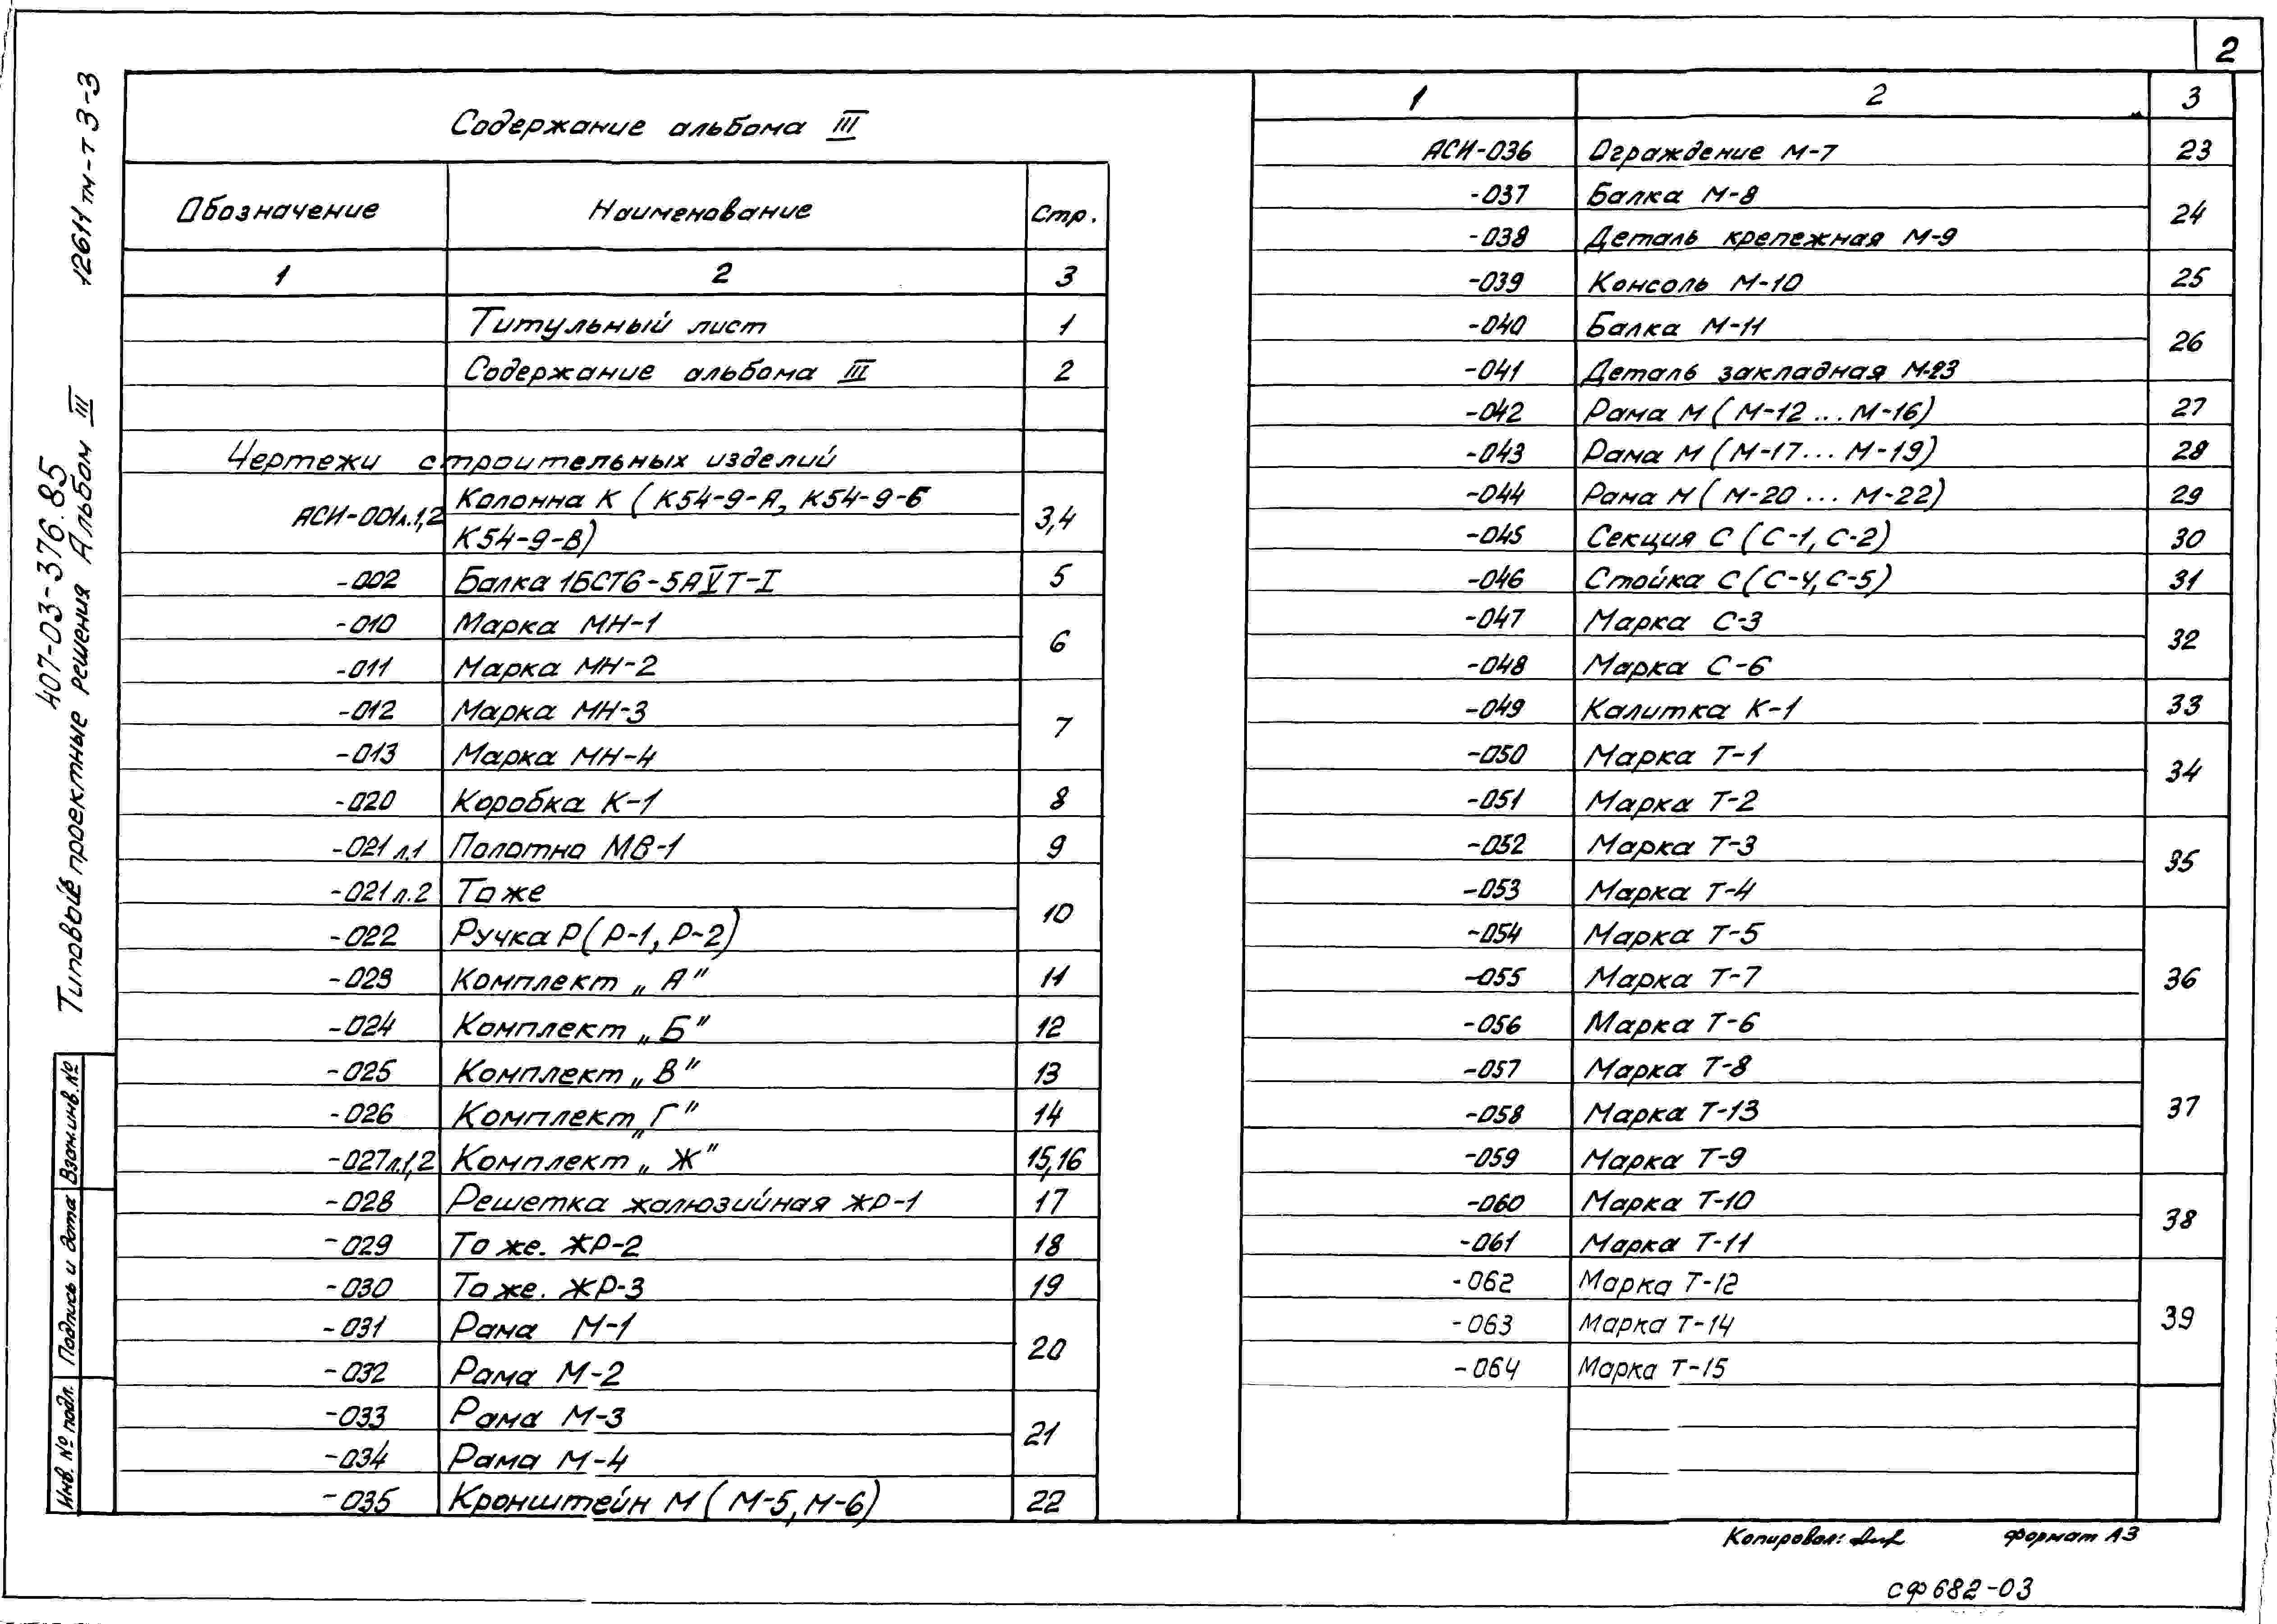 2
12611тм-т 3-3
407-03-376.85
Типовые проектные решения Альбом III
Взам.инв.№
Подпись и дата
Инв. № подл.
Содержание альбома III
Обозначение Наименование Стр.
1 2 3
Титульный лист 1
Содержание альбома III 2
Чертежи строительных изделий
АСИ-001л.1,2 Колонна К (К54-9-А, К54-9-Б 3,4
К54-9-В)
-002 Балка 1БСТ6-5АVТ-I 5
-010 Марка МН-1 6
-011 Марка МН-2
-012 Марка МН-3 7
-013 Марка МН-4
-020 Коробка К-1 8
-021 л.1 Полотно МВ-1 9
-021 л.2 То же 10
-022 Ручка Р(Р-1, Р-2)
-023 Комплект „А" 11
-024 Комплект „Б" 12
-025 Комплект „В" 13
-026 Комплект „Г" 14
-027л.1,2 Комплект „Ж" 15,16
-028 Решетка жалюзийная ЖР-1 17
-029 То же. ЖР-2 18
-030 То же. ЖР-3 19
-031 Рама М-1 20
-032 Рама М-2
-033 Рама М-3 21
-034 Рама М-4
-035 Кронштейн М (М-5, М-6) 22
1 2 3
АСИ-036 Ограждение М-7 23
-037 Балка М-8 24
-038 Деталь крепежная М-9
-039 Консоль М-10 25
-040 Балка М-11 26
-041 Деталь закладная М-23
-042 Рама М (М-12 ... М-16) 27
-043 Рама М (М-17... М-19) 28
-044 Рама М (М-20 ... М-22) 29
-045 Секция С (С-1, С-2) 30
-046 Стойка С (С-4, С-5) 31
-047 Марка С-3 32
-048 Марка С-6
-049 Калитка К-1 33
-050 Марка Т-1 34
-051 Марка Т-2
-052 Марка Т-3 35
-053 Марка Т-4
-054 Марка Т-5 36
-055 Марка Т-7
-056 Марка Т-6
-057 Марка Т-8 37
-058 Марка Т-13
-059 Марка Т-9
-060 Марка Т-10 38
-061 Марка Т-11
-062 Марка Т-12 39
-063 Марка Т-14
-064 Марка Т-15
Копировал: формат А3
сф682-03